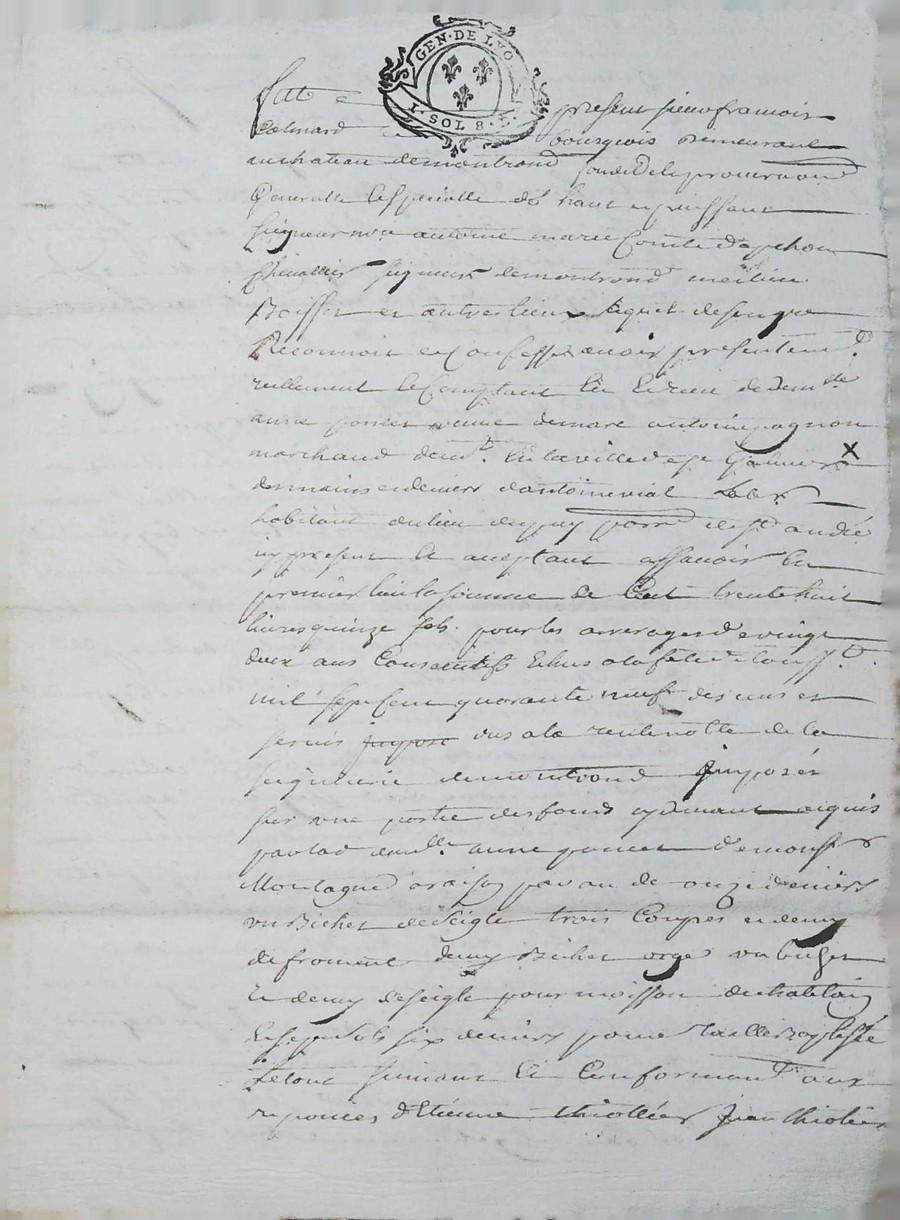 GEN·DE LYO
I·SOL 8·D
present sieur francois
bourgeois demeurant
au chateau de montrond fondé de la procuration
Generalle & speciallе de haut et puissant
seigneur antoine marie Comte d'apchon
Chevallier seigneur de montrond meilieu
Boisset et autres lieux lequel de son gre
Reconnoit et Confesse avoir presentemt
reellement & Comptant de demlle
anne veuve de marc antoine pagnon
marchand demt en la ville de st Galmier X
des mains et deniers d'antoine vial
habitant du lieu du puy parroisse de st andré
icy present & aceptant assavoir en
premier lieu la somme de Cent trente huit
livres quinze sols pour les arrerages de vingt
deux ans Consecutifs Echus a la fete de
mil sept Cent quarante neuf des cens et
servis imposé dus a la rente notte de la
seigneurie de montrond Imposés
sur une partie des fonds cy devant acquis
par lad demlle anne de monsr
Montagne a raison par an de onze deniers
un Bichet de seigle trois Coupes et demy
de froment demy Bichet orge un bichet
& demy de seigle pour moisson
& sept sols six deniers pour taille
Le tout suivant & Conformement aux
reponces d'Etienne thiollier jean thiolier